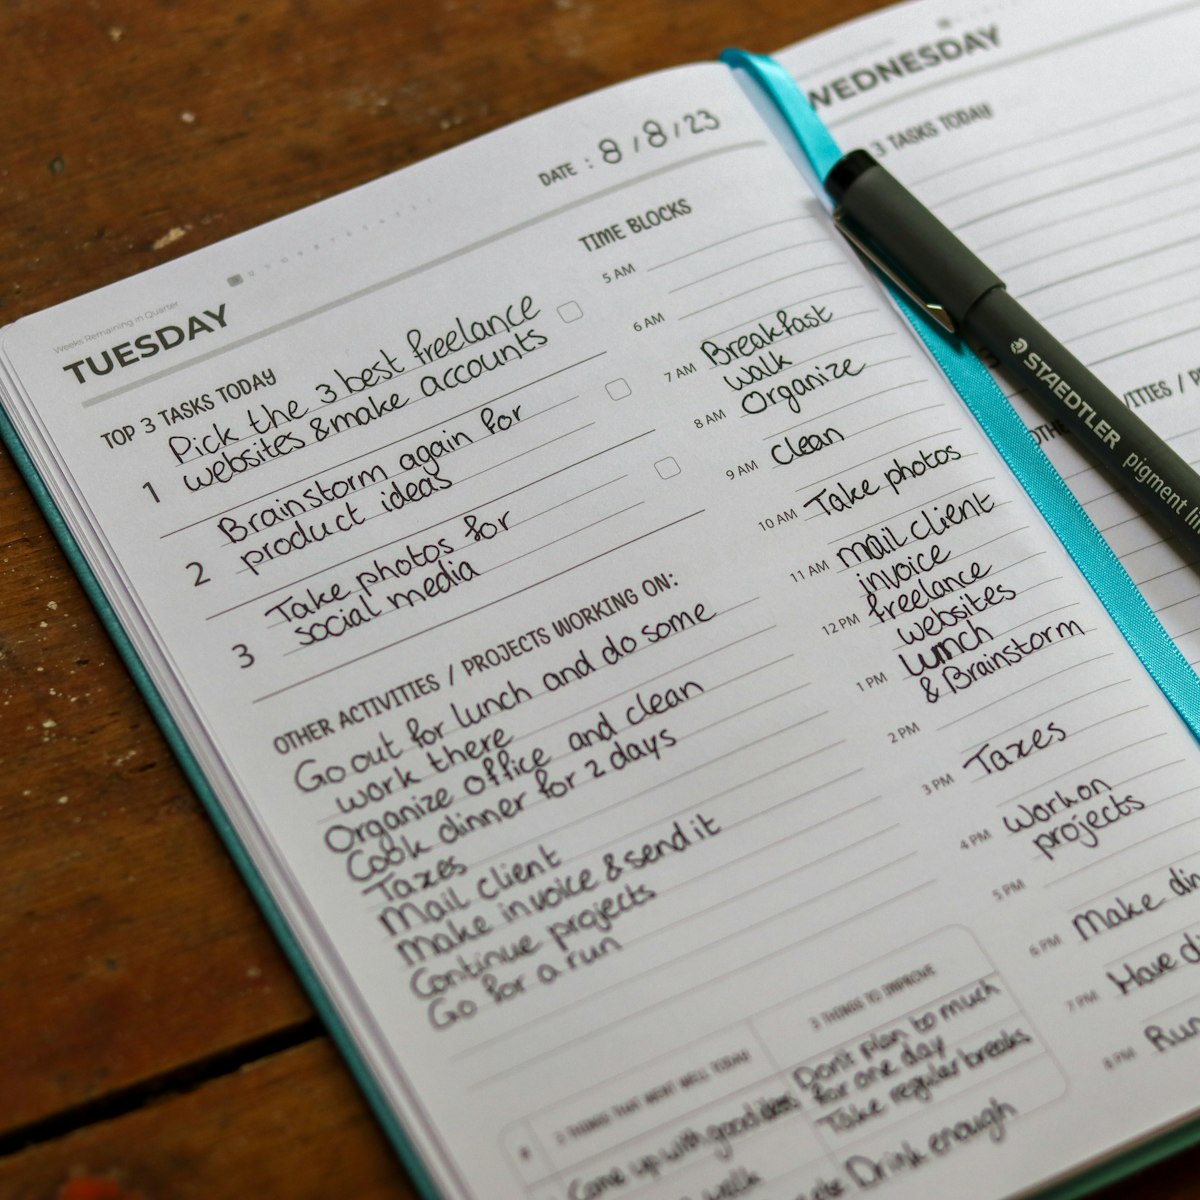 Weeks Remaining in Quarter
TUESDAY
DATE : 8/8/23
TOP 3 TASKS TODAY
1 Pick the 3 best freelance
websites & make accounts
2 Brainstorm again for
product ideas
3 Take photos for
social media
OTHER ACTIVITIES / PROJECTS WORKING ON:
Go out for lunch and do some
work there
Organize office and clean
Cook dinner for 2 days
Taxes
Mail client
Make invoice & send it
Continue projects
Go for a run
TIME BLOCKS
5 AM
6 AM
7 AM Breakfast
walk
8 AM Organize
9 AM Clean
10 AM Take photos
11 AM mail client
invoice
12 PM freelance
websites
1 PM Lunch
& Brainstorm
2 PM
3 PM Taxes
4 PM Work on
projects
5 PM
6 PM Make din
7 PM Have di
8 PM Run
3 THINGS THAT WENT WELL TODAY
Come up with good ideas
walk
3 THINGS TO IMPROVE
Don't plan to much
for one day
Take regular breaks
Drink enough
WEDNESDAY
3 TASKS TODAY
OTH
VITIES / P
STAEDTLER pigment li